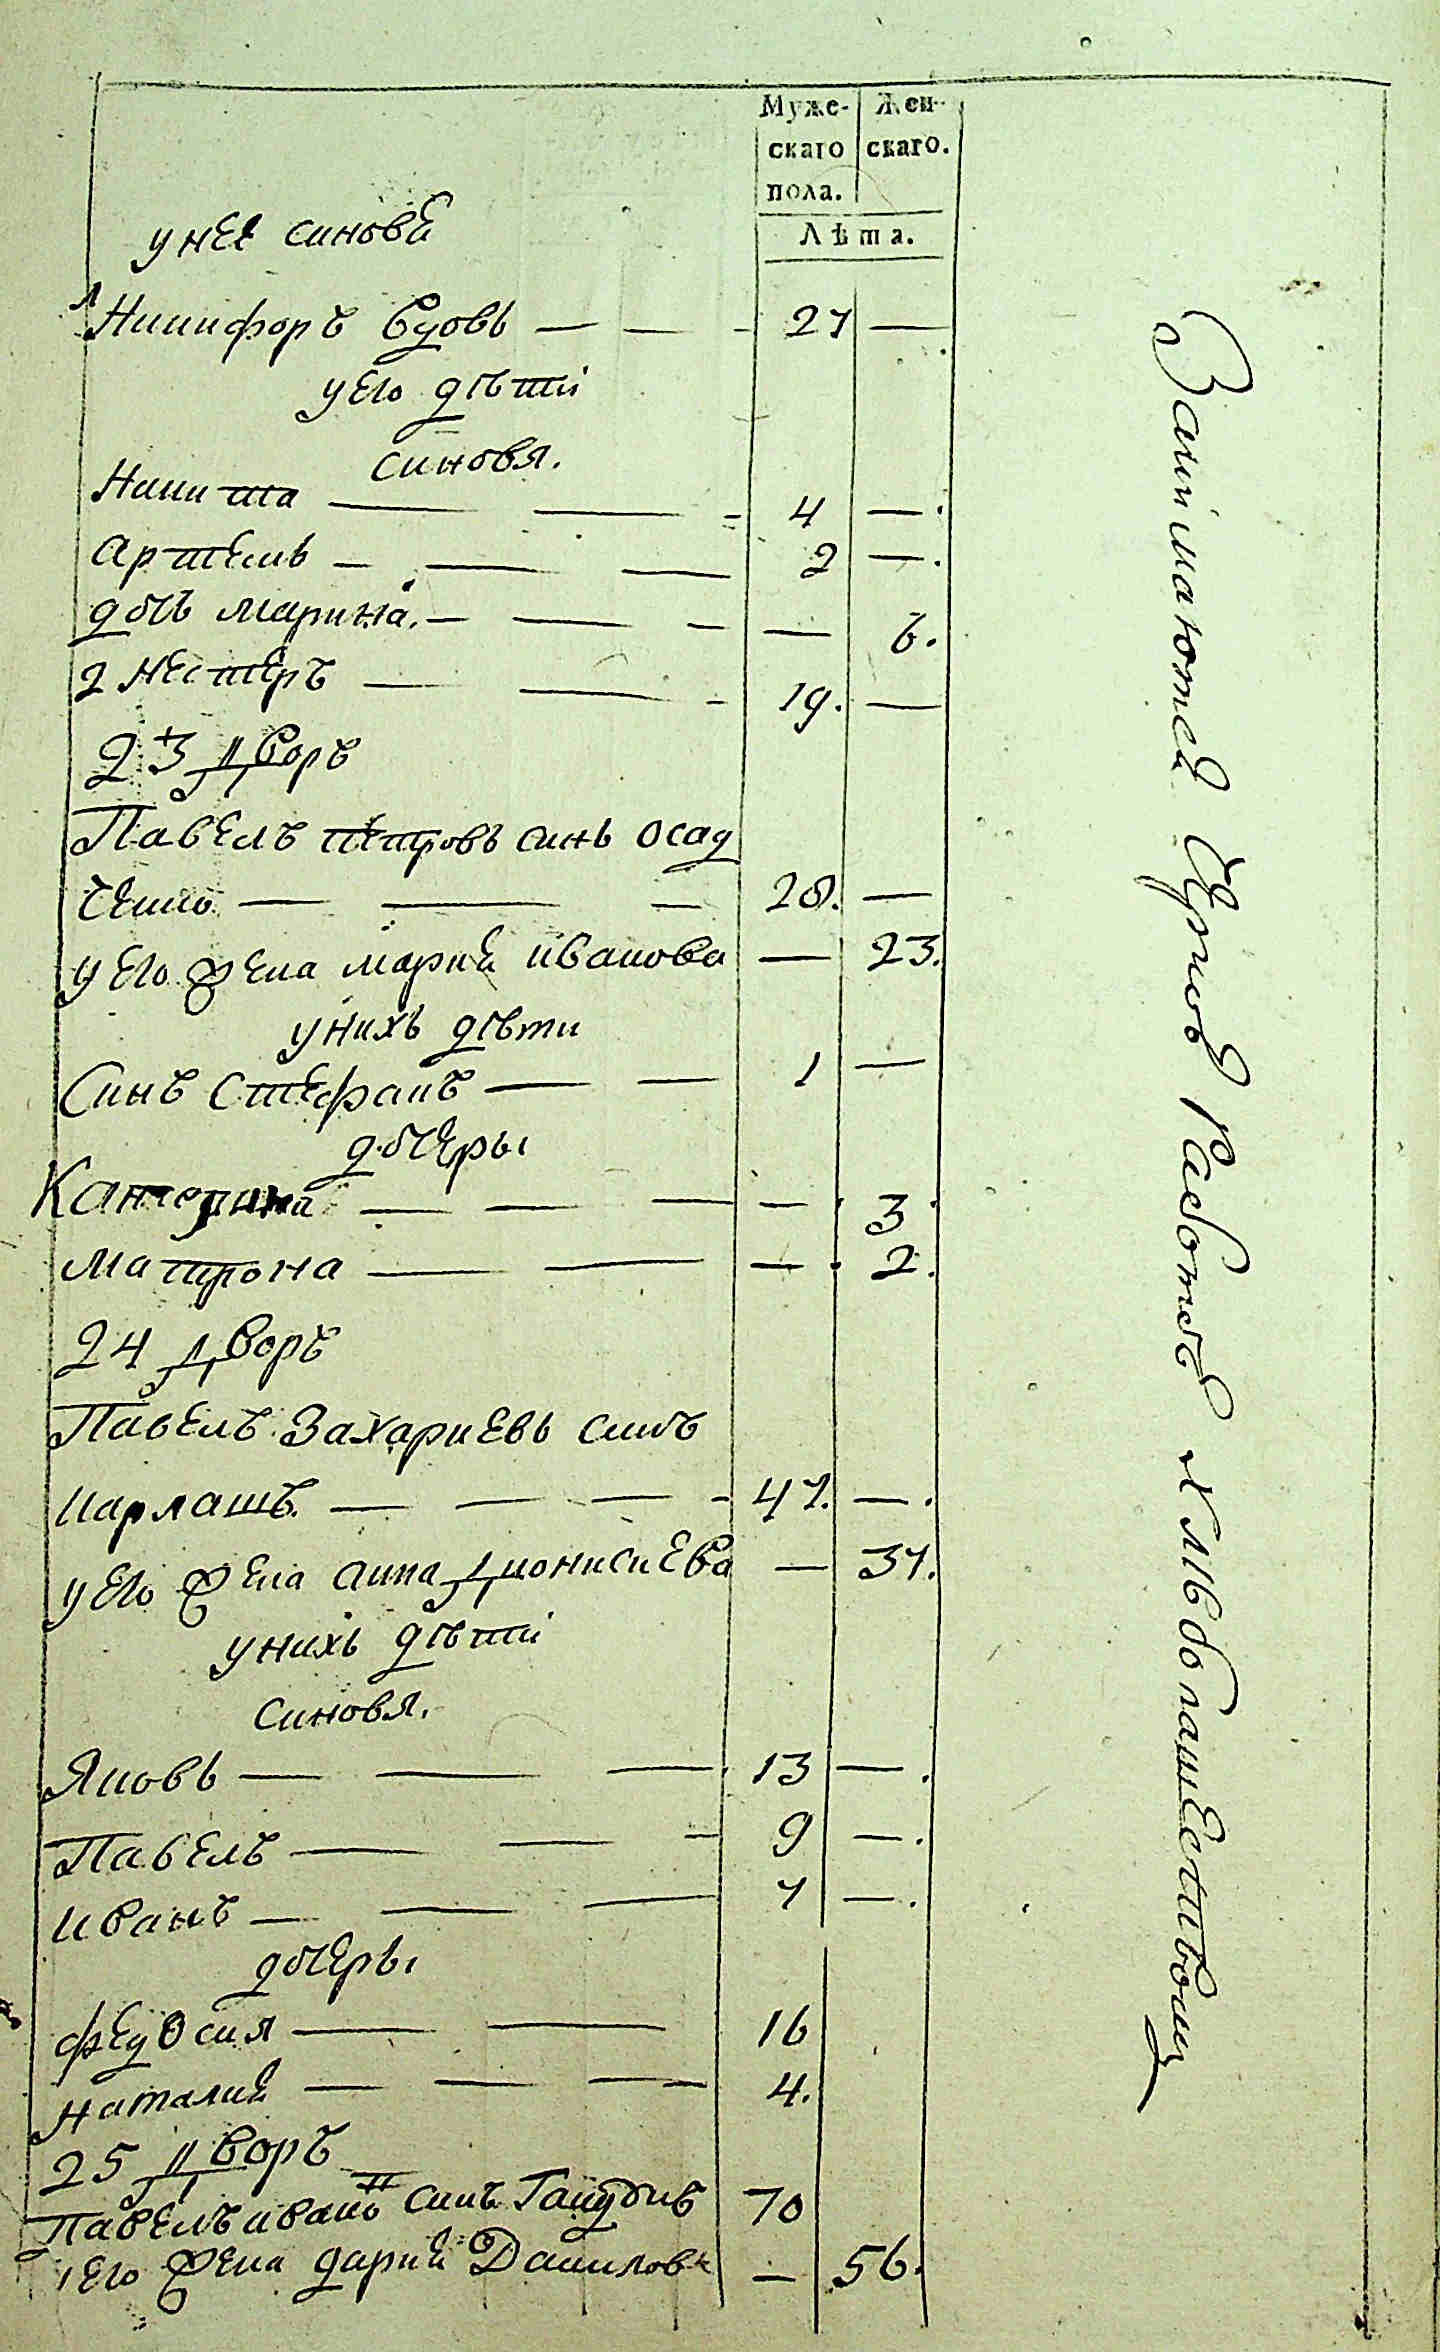 Муже-
скаго
пола.
Жен-
скаго.
Лѣта.
у нее синовѣ
1 Никифоръ вдовъ — — - 27 —
у его дѣти
синовя.
Никита — — - 4 —.
Артемъ — — — 2 —.
дочь Марина. — — - — 6.
2 Нестеръ — — - 19. —
23 Дворъ
Павелъ Петровъ синъ Осад
ченко — — — 28. —
у его жена Мария Иванова — 23.
у нихъ дѣти
Синъ Стефанъ — — 1 —
дочеры
Катерина — — — — 3
Матрона — — — 2.
24 Дворъ
Павелъ Захариевъ синъ
Карлашъ. — — — - 47. —.
у его жена Анна Дионисиева — 37.
у нихъ дѣти
синовя.
Яковъ — — — 13 —.
Павелъ — — - 9 —.
Иванъ — — — 7 —.
дочеры
Федосия — — 16
Наталия — — — 4.
25 Дворъ
Павелъ Ивановъ синъ 70
его жена Дария Данилова — 56.
Занимаютса Черною Работою Хлѣбопашеством